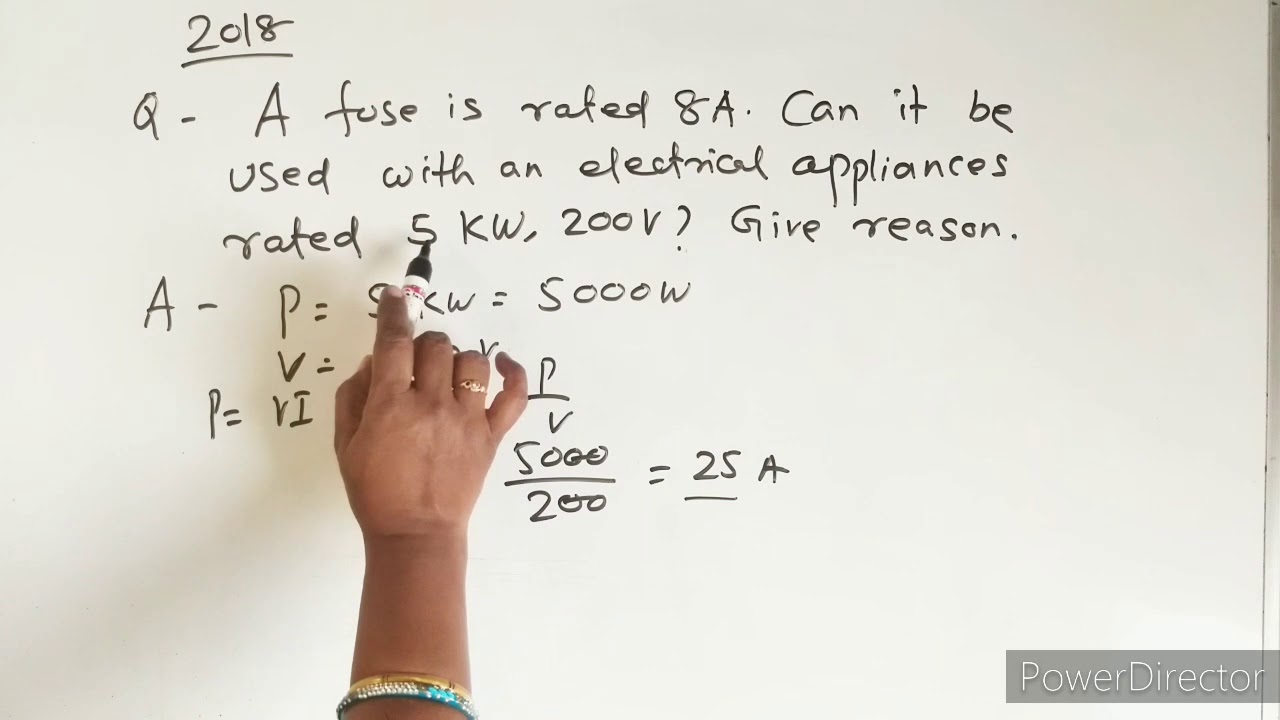 2018
Q - A fuse is rated 8A. Can it be
used with an electrical appliances
rated 5 KW, 200V? Give reason.
A - P = 5 KW = 5000W
V =
P = VI
P
V
5000
200
= 25 A
PowerDirector